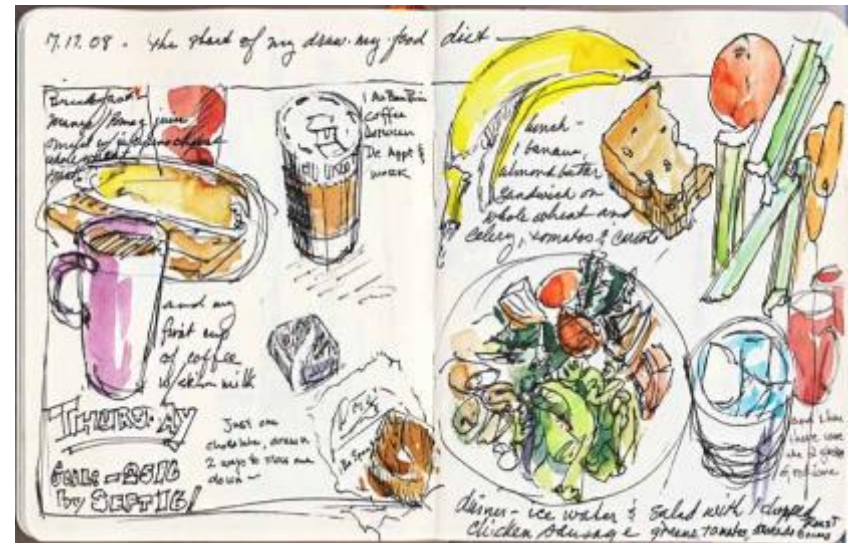 7.17.08 - the start of my draw-my-food diet
Breakfast -
Mango / Pomeg juice
omelet w/ jalapeno cheese
whole wheat
toast
1 Au Bon Pain
coffee
between
Dr. Appt &
work
and my
first cup
of coffee
w/ skim milk
THURSDAY
GOAL = 25 lb
by SEPT 16!
Just one
chocolate, drawn
2 ways to slow me
down ~
lunch -
1 banana
almond butter
sandwich on
whole wheat and
celery, tomatos & carrots
and then
there were
the 2 glasses
of red wine
dinner - ice water & salad with 1 chopped
chicken sausage greens, tomatos, avocado